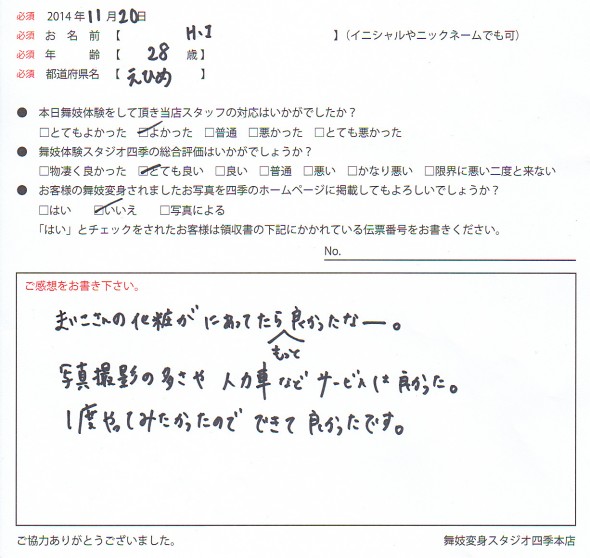 必須 2014年11月20日
必須 お名前【 H.I 】(イニシャルやニックネームでも可)
必須 年齢【 28 歳】
必須 都道府県名【 えひめ 】
● 本日舞妓体験をして頂き当店スタッフの対応はいかがでしたか?
□とてもよかった ☑よかった □普通 □悪かった □とても悪かった
● 舞妓体験スタジオ四季の総合評価はいかがでしょうか?
□物凄く良かった ☑とても良い □良い □普通 □悪い □かなり悪い □限界に悪い二度と来ない
● お客様の舞妓変身されましたお写真を四季のホームページに掲載してもよろしいでしょうか?
□はい ☑いいえ □写真による
「はい」とチェックをされたお客様は領収書の下記にかかれている伝票番号をお書きください。
No.
ご感想をお書き下さい。
まいこさんの化粧がにあってたら良かったなー。
もっと
写真撮影の多さや人力車などサービスは良かった。
1度やってみたかったのでできて良かったです。
ご協力ありがとうございました。 舞妓変身スタジオ四季本店